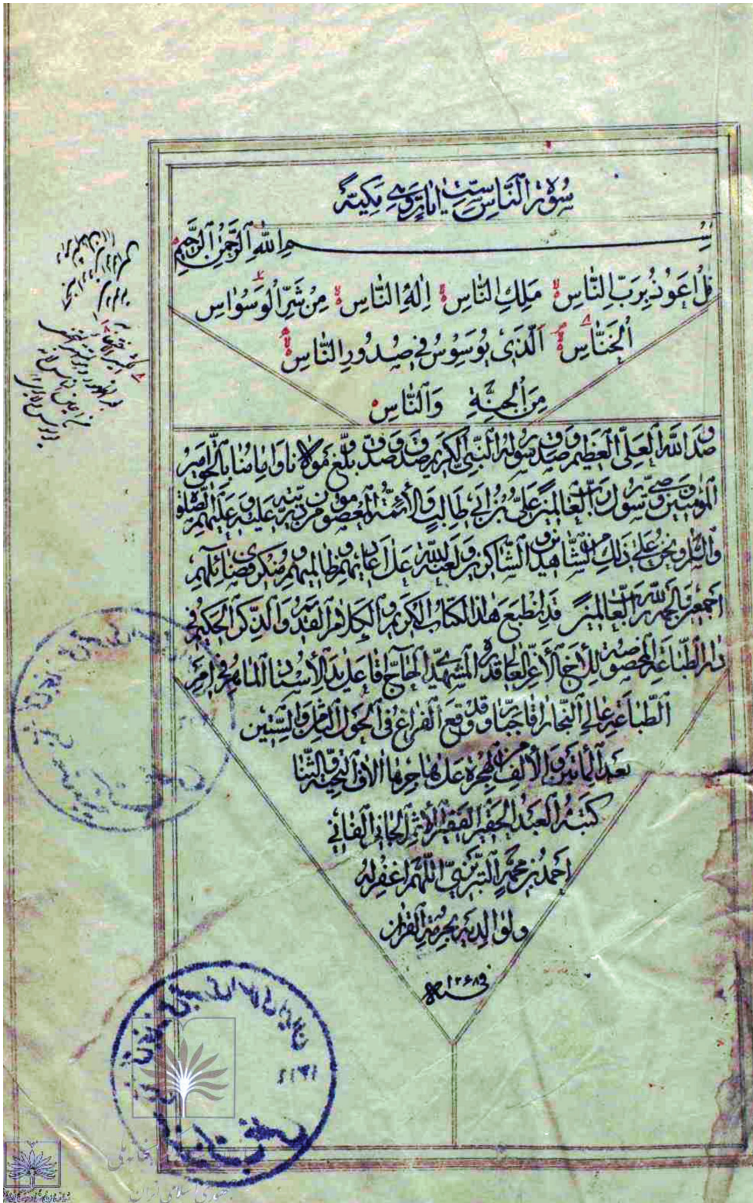 سورة الناس ست ايات وهي مكية
بسم الله الرحمن الرحيم
قل اعوذ برب الناس ملك الناس اله الناس من شر الوسواس
الخناس الذى يوسوس فى صدور الناس
من الجنة والناس
صدق الله العلى العظيم وصدق رسوله النبى الكريم وصدق وبلغ مولانا وامامنا بالحق امير
المؤمنين ووصى رسول رب العالمين على بن ابى طالب والائمة المعصومون من ذريته عليه وعليهم الصلوة
والسلام ونحن على ذلك من الشاهدين والشاكرين ولعنة الله على اعدائهم وظالميهم ومنكرى فضائلهم
اجمعين والحمد لله رب العالمين قد انطبع هذا الكتاب الكريم والكلام القديم والذكر الحكيم فى
دار الطباعة المخصوصة للأخ الأعز المشهدى الحاج اقا الأستاد الماهر فى امر
الطباعة عالى النجار اقا وقد وقع الفراغ فى الحول الثامن والستين
بعد المأتين والألف من الهجرة على هاجرها الاف التحية والثنا
كتبه العبد الحقير الفقير الاثم الجانى الفانى
احمد بن محمد التبريزى اللهم اغفر له
ولوالديه بحرمة القران
فى سنه ١٢٦٨